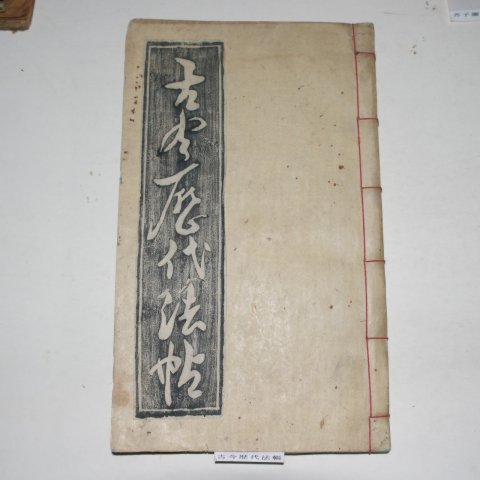 古今歷代法帖
古今歷代法帖